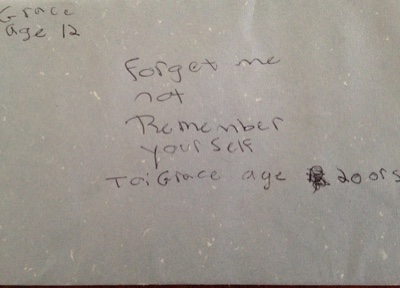 Grace
age 12
Forget me
not
Remember
yourself
To: Grace age 20 ors